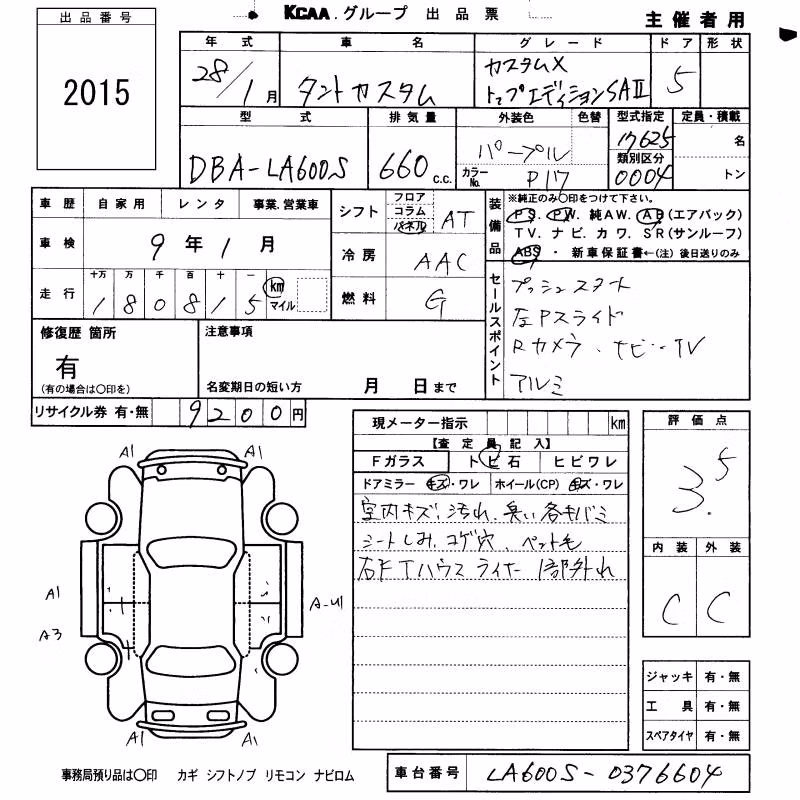 KCAA.グループ 出品票
主催者用
出品番号
2015
年式 車名 グレード ドア 形状
28/1月 タントカスタム カスタムX
トップエディションSAII 5
型式 排気量 外装色 色替 型式指定 定員・積載
DBA-LA600S 660c.c. パープル 17625 名
カラーNo. P17 類別区分 0004 トン
車歴 自家用 レンタ 事業.営業車
車検 9年1月
走行 十万 万 千 百 十 一
1 8 0 8 1 5 km マイル
シフト フロア コラム パネル AT
冷房 AAC
燃料 G
装備品 ※純正のみ○印をつけて下さい。
PS. PW. 純AW. AB(エアバック)
TV. ナビ. カワ. SR(サンルーフ)
ABS・新車保証書←(注)後日送りのみ
セールスポイント
プッシュスタート
左Pスライド
Rカメラ・ナビ・TV
アルミ
修復歴 箇所
有
(有の場合は○印を)
注意事項
名変期日の短い方 月 日まで
リサイクル券 有・無 9200円
現メーター指示 km
【査定員記入】
Fガラス トビ石 ヒビワレ
ドアミラー キズ・ワレ ホイール(CP) キズ・ワレ
室内キズ、汚れ、臭い各キバミ
シートしみ、コゲ穴、ペット毛
右F Tハウスライナー 1部外れ
評価点
3.5
内装 外装
C C
A1 A1
A1
A3
A-U1
A1 A1
ジャッキ 有・無
工具 有・無
スペアタイヤ 有・無
事務局預り品は○印 カギ シフトノブ リモコン ナビロム
車台番号 LA600S-0376604